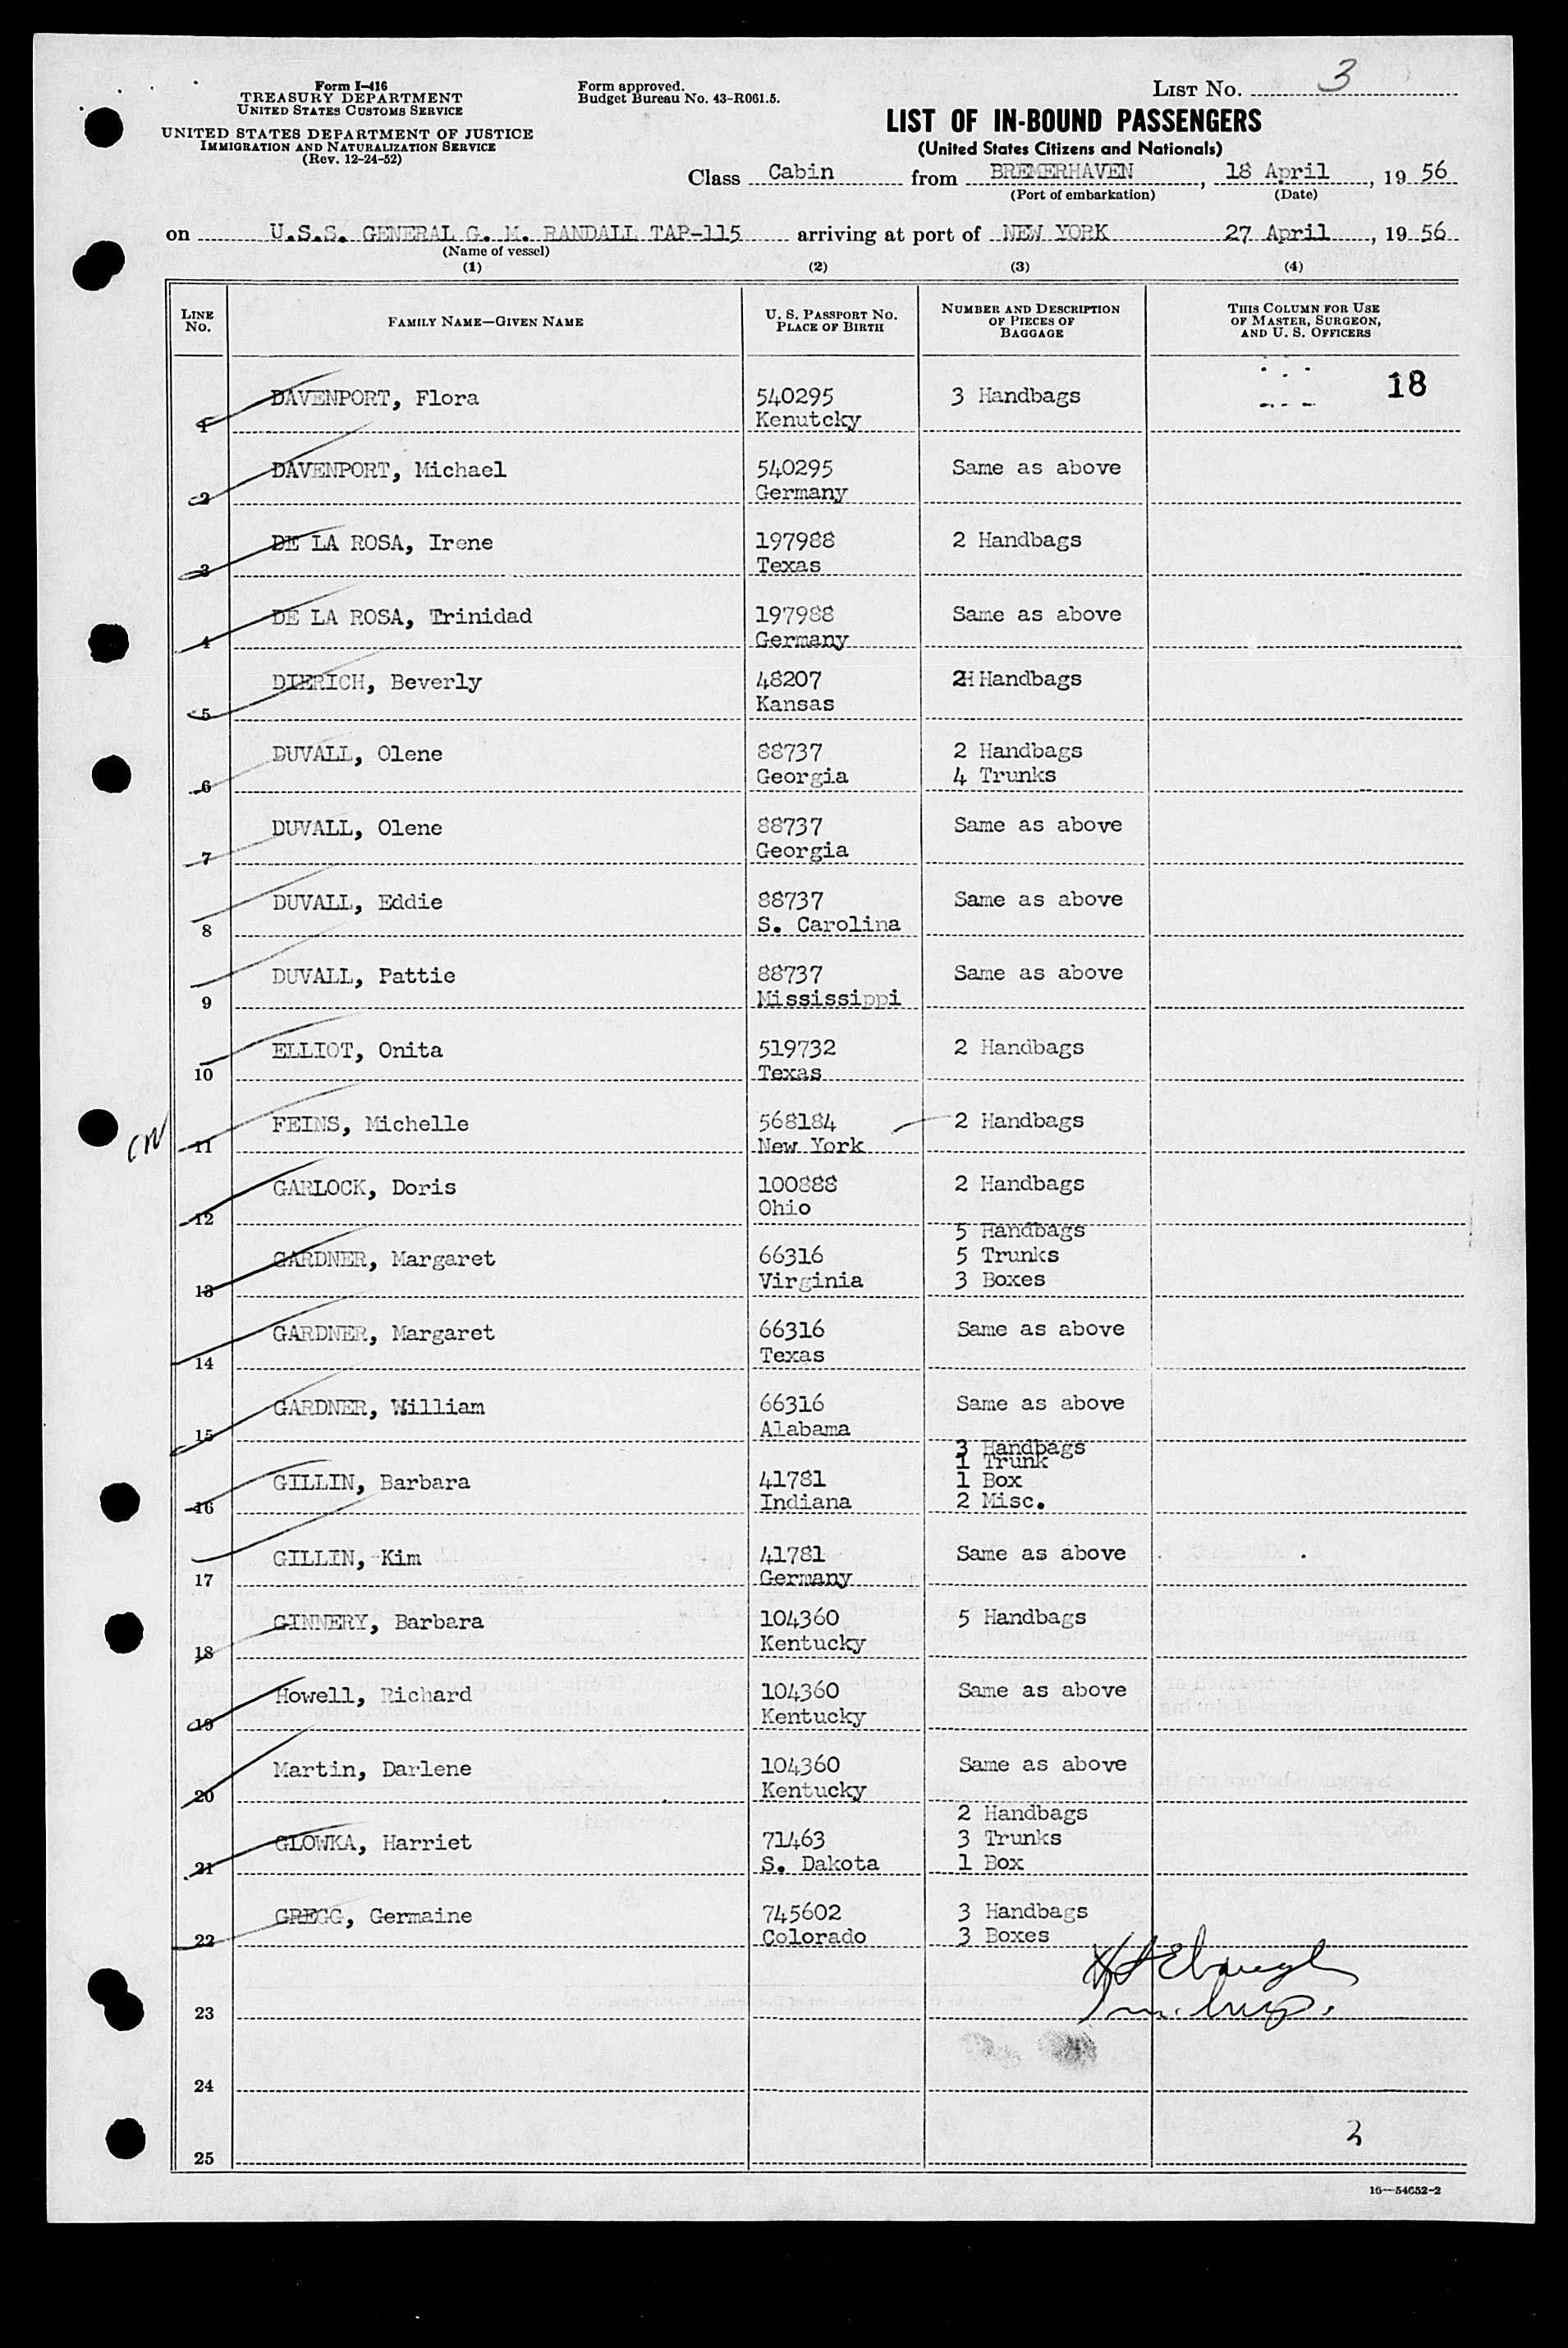 Form I-416
TREASURY DEPARTMENT
UNITED STATES CUSTOMS SERVICE
UNITED STATES DEPARTMENT OF JUSTICE
IMMIGRATION AND NATURALIZATION SERVICE
(Rev. 12-24-52)
Form approved.
Budget Bureau No. 43-R061.5.
LIST No. 3
LIST OF IN-BOUND PASSENGERS
(United States Citizens and Nationals)
Class Cabin from BREMERHAVEN, 18 April, 1956
(Port of embarkation) (Date)
on U.S.S. GENERAL G. M. RANDALL TAP-115 arriving at port of NEW YORK 27 April, 1956
(Name of vessel)
(1) (2) (3) (4)
LINE No. FAMILY NAME—GIVEN NAME U. S. PASSPORT No. PLACE OF BIRTH NUMBER AND DESCRIPTION OF PIECES OF BAGGAGE THIS COLUMN FOR USE OF MASTER, SURGEON, AND U. S. OFFICERS
18
1 DAVENPORT, Flora 540295 3 Handbags
Kenutcky
2 DAVENPORT, Michael 540295 Same as above
Germany
3 DE LA ROSA, Irene 197988 2 Handbags
Texas
4 DE LA ROSA, Trinidad 197988 Same as above
Germany
5 DIERICH, Beverly 48207 2H Handbags
Kansas
6 DUVALL, Olene 88737 2 Handbags
Georgia 4 Trunks
7 DUVALL, Olene 88737 Same as above
Georgia
8 DUVALL, Eddie 88737 Same as above
S. Carolina
9 DUVALL, Pattie 88737 Same as above
Mississippi
10 ELLIOT, Onita 519732 2 Handbags
Texas
11 FEINS, Michelle 568184 2 Handbags
New York
12 GARLOCK, Doris 100888 2 Handbags
Ohio
5 Handbags
13 GARDNER, Margaret 66316 5 Trunks
Virginia 3 Boxes
14 GARDNER, Margaret 66316 Same as above
Texas
15 GARDNER, William 66316 Same as above
Alabama
3 Handbags
1 Trunk
16 GILLIN, Barbara 41781 1 Box
Indiana 2 Misc.
17 GILLIN, Kim 41781 Same as above
Germany
18 GINNERY, Barbara 104360 5 Handbags
Kentucky
19 Howell, Richard 104360 Same as above
Kentucky
20 Martin, Darlene 104360 Same as above
Kentucky
2 Handbags
21 GLOWKA, Harriet 71463 3 Trunks
S. Dakota 1 Box
22 GREGG, Germaine 745602 3 Handbags
Colorado 3 Boxes
23
24
25
3
16—54652-2